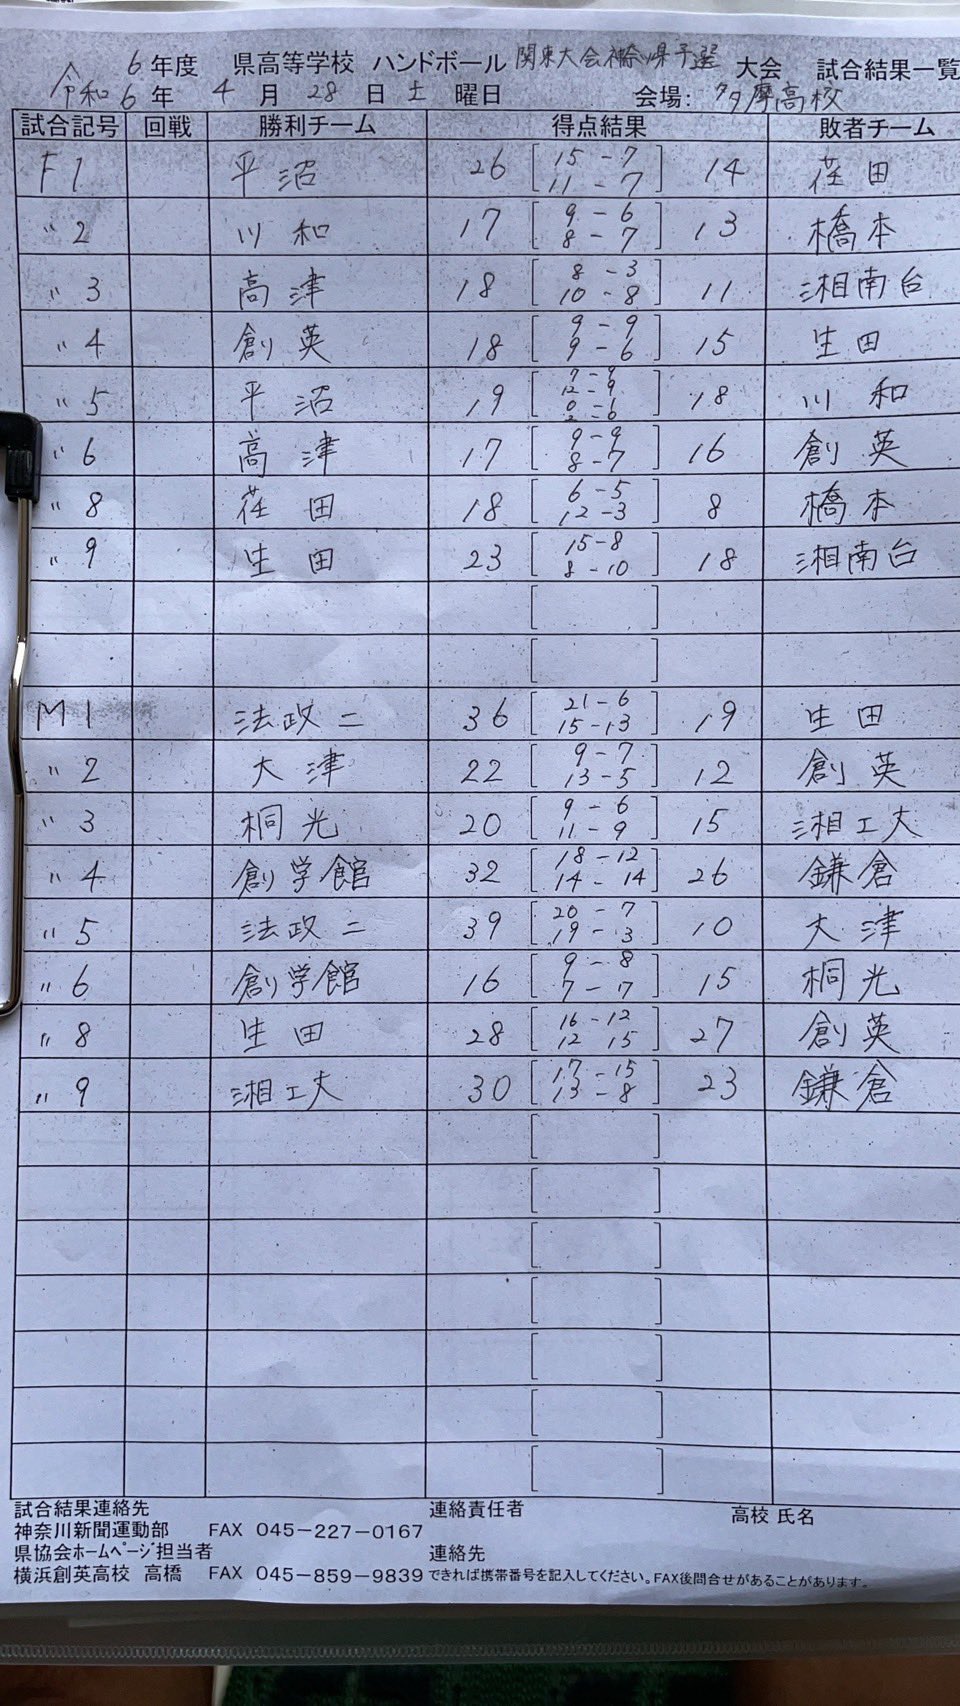 令和 6 年度 県高等学校 ハンドボール 関東大会神奈川県予選 大会 試合結果一覧
6 年 4 月 28 日 土 曜日 会場: 多摩高校
試合記号 回戦 勝利チーム 得点結果 敗者チーム
F1 平沼 26 [ 15-7 11-7 ] 14 荏田
〃2 川和 17 [ 9-6 8-7 ] 13 橋本
〃3 高津 18 [ 8-3 10-8 ] 11 湘南台
〃4 創英 18 [ 9-9 9-6 ] 15 生田
〃5 平沼 19 [ 12-9 ] 18 川和
〃6 高津 17 [ 9-9 8-7 ] 16 創英
〃8 荏田 18 [ 6-5 12-3 ] 8 橋本
〃9 生田 23 [ 15-8 8-10 ] 18 湘南台
M1 法政二 36 [ 21-6 15-13 ] 19 生田
〃2 大津 22 [ 9-7 13-5 ] 12 創英
〃3 桐光 20 [ 9-6 11-9 ] 15 湘工大
〃4 創学館 32 [ 18-12 14-14 ] 26 鎌倉
〃5 法政二 39 [ 20-7 19-3 ] 10 大津
〃6 創学館 16 [ 9-8 7-7 ] 15 桐光
〃8 生田 28 [ 16-12 12 15 ] 27 創英
〃9 湘工大 30 [ 17-15 13-8 ] 23 鎌倉
試合結果連絡先 連絡責任者 高校 氏名
神奈川新聞運動部 FAX 045-227-0167
県協会ホームページ担当者 連絡先
横浜創英高校 高橋 FAX 045-859-9839 できれば携帯番号を記入してください。FAX後問合せがあることがあります。